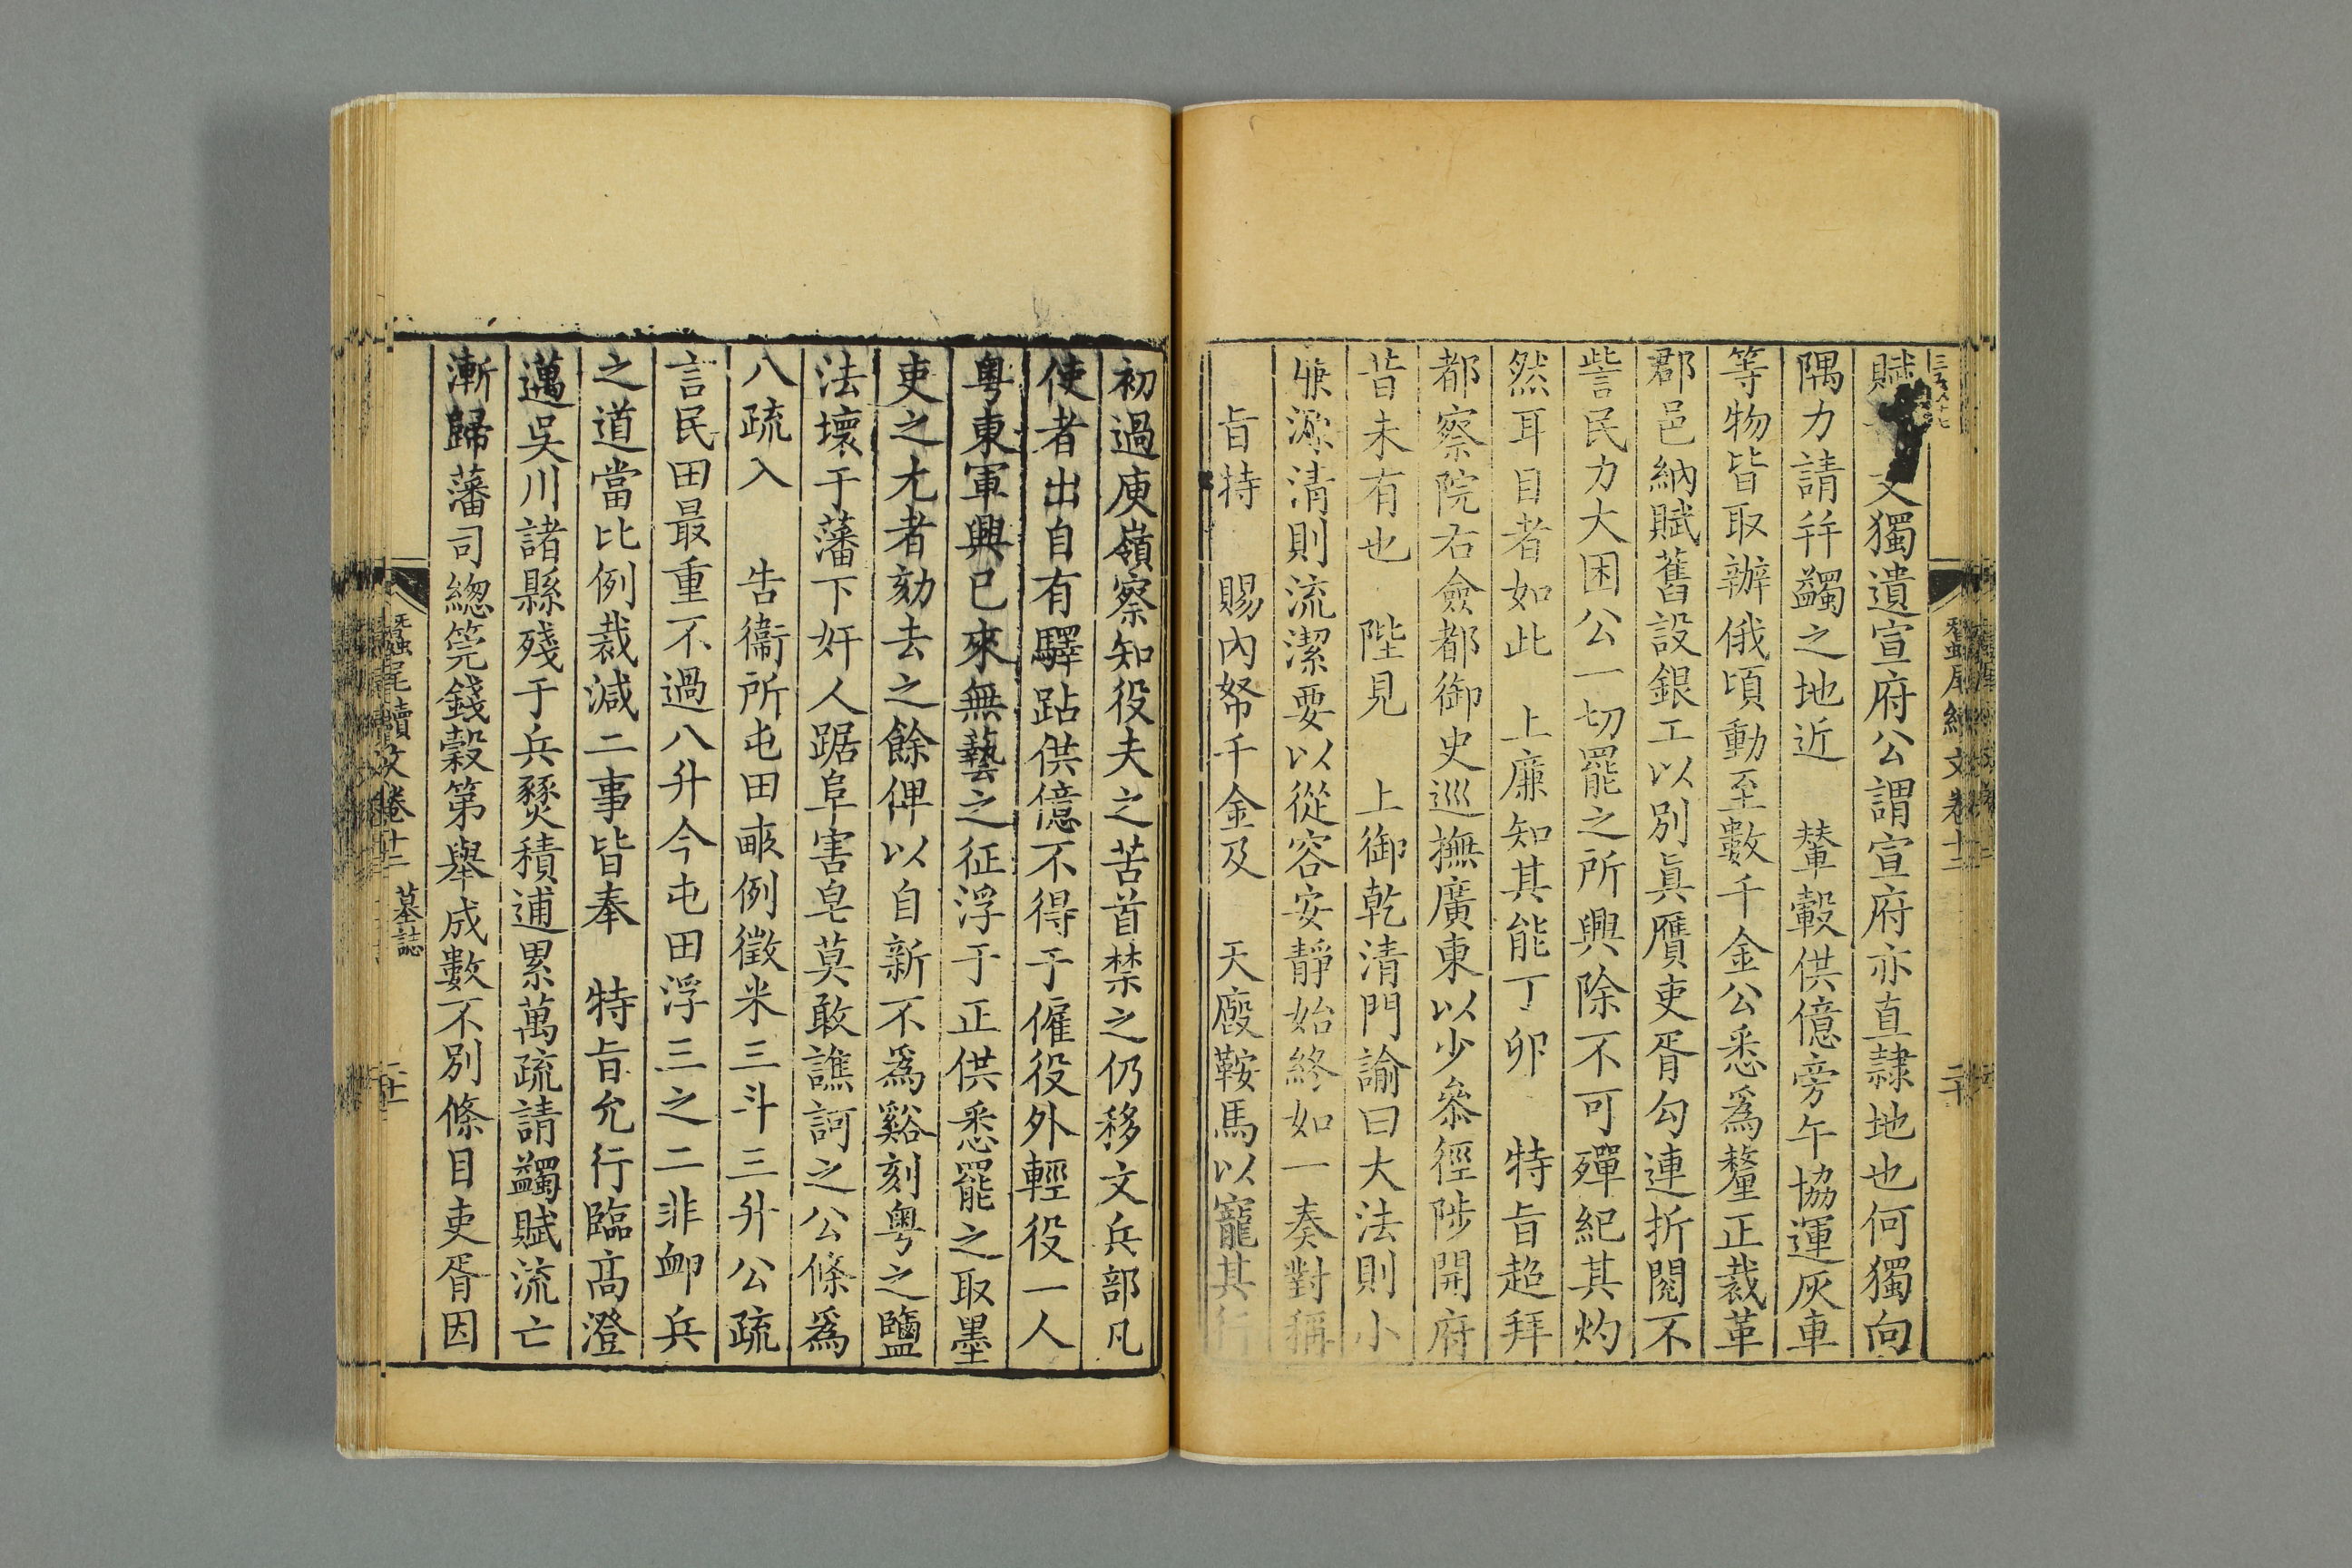 賦文獨遺宣府公謂宣府亦直隷地也何獨向
隅力請幷蠲之地近　輦轂供億旁午協運灰車
等物皆取辦俄頃動至數千金公悉爲釐正裁革
郡邑納賦舊設銀工以別眞贋吏胥勾連折閱不
訾民力大困公一切罷之所興除不可殫紀其灼
然耳目者如此　上廉知其能丁卯　特旨超拜
都察院右僉都御史巡撫廣東以少叅徑陟開府
昔未有也　陛見　上御乾清門諭曰大法則小
亷源清則流潔要以從容安靜始終如一奏對稱
旨特　賜內帑千金及　天廄鞍馬以寵其行
初過庾嶺察知役夫之苦首禁之仍移文兵部凡
使者出自有驛跕供億不得于僱役外輕役一人
粵東軍興已來無藝之征浮于正供悉罷之取墨
吏之尤者劾去之餘俾以自新不爲谿刻粵之鹽
法壞于藩下奸人踞阜害皂莫敢譙訶之公條爲
八疏入　告衞所屯田畝例徵米三斗三升公疏
言民田最重不過八升今屯田浮三之二非䘏兵
之道當比例裁減二事皆奉　特旨允行臨高澄
邁吳川諸縣殘于兵燹積逋累萬疏請蠲賦流亡
漸歸藩司緫筦錢穀第舉成數不別條目吏胥因
蠶尾續文卷十二　墓誌　二十一